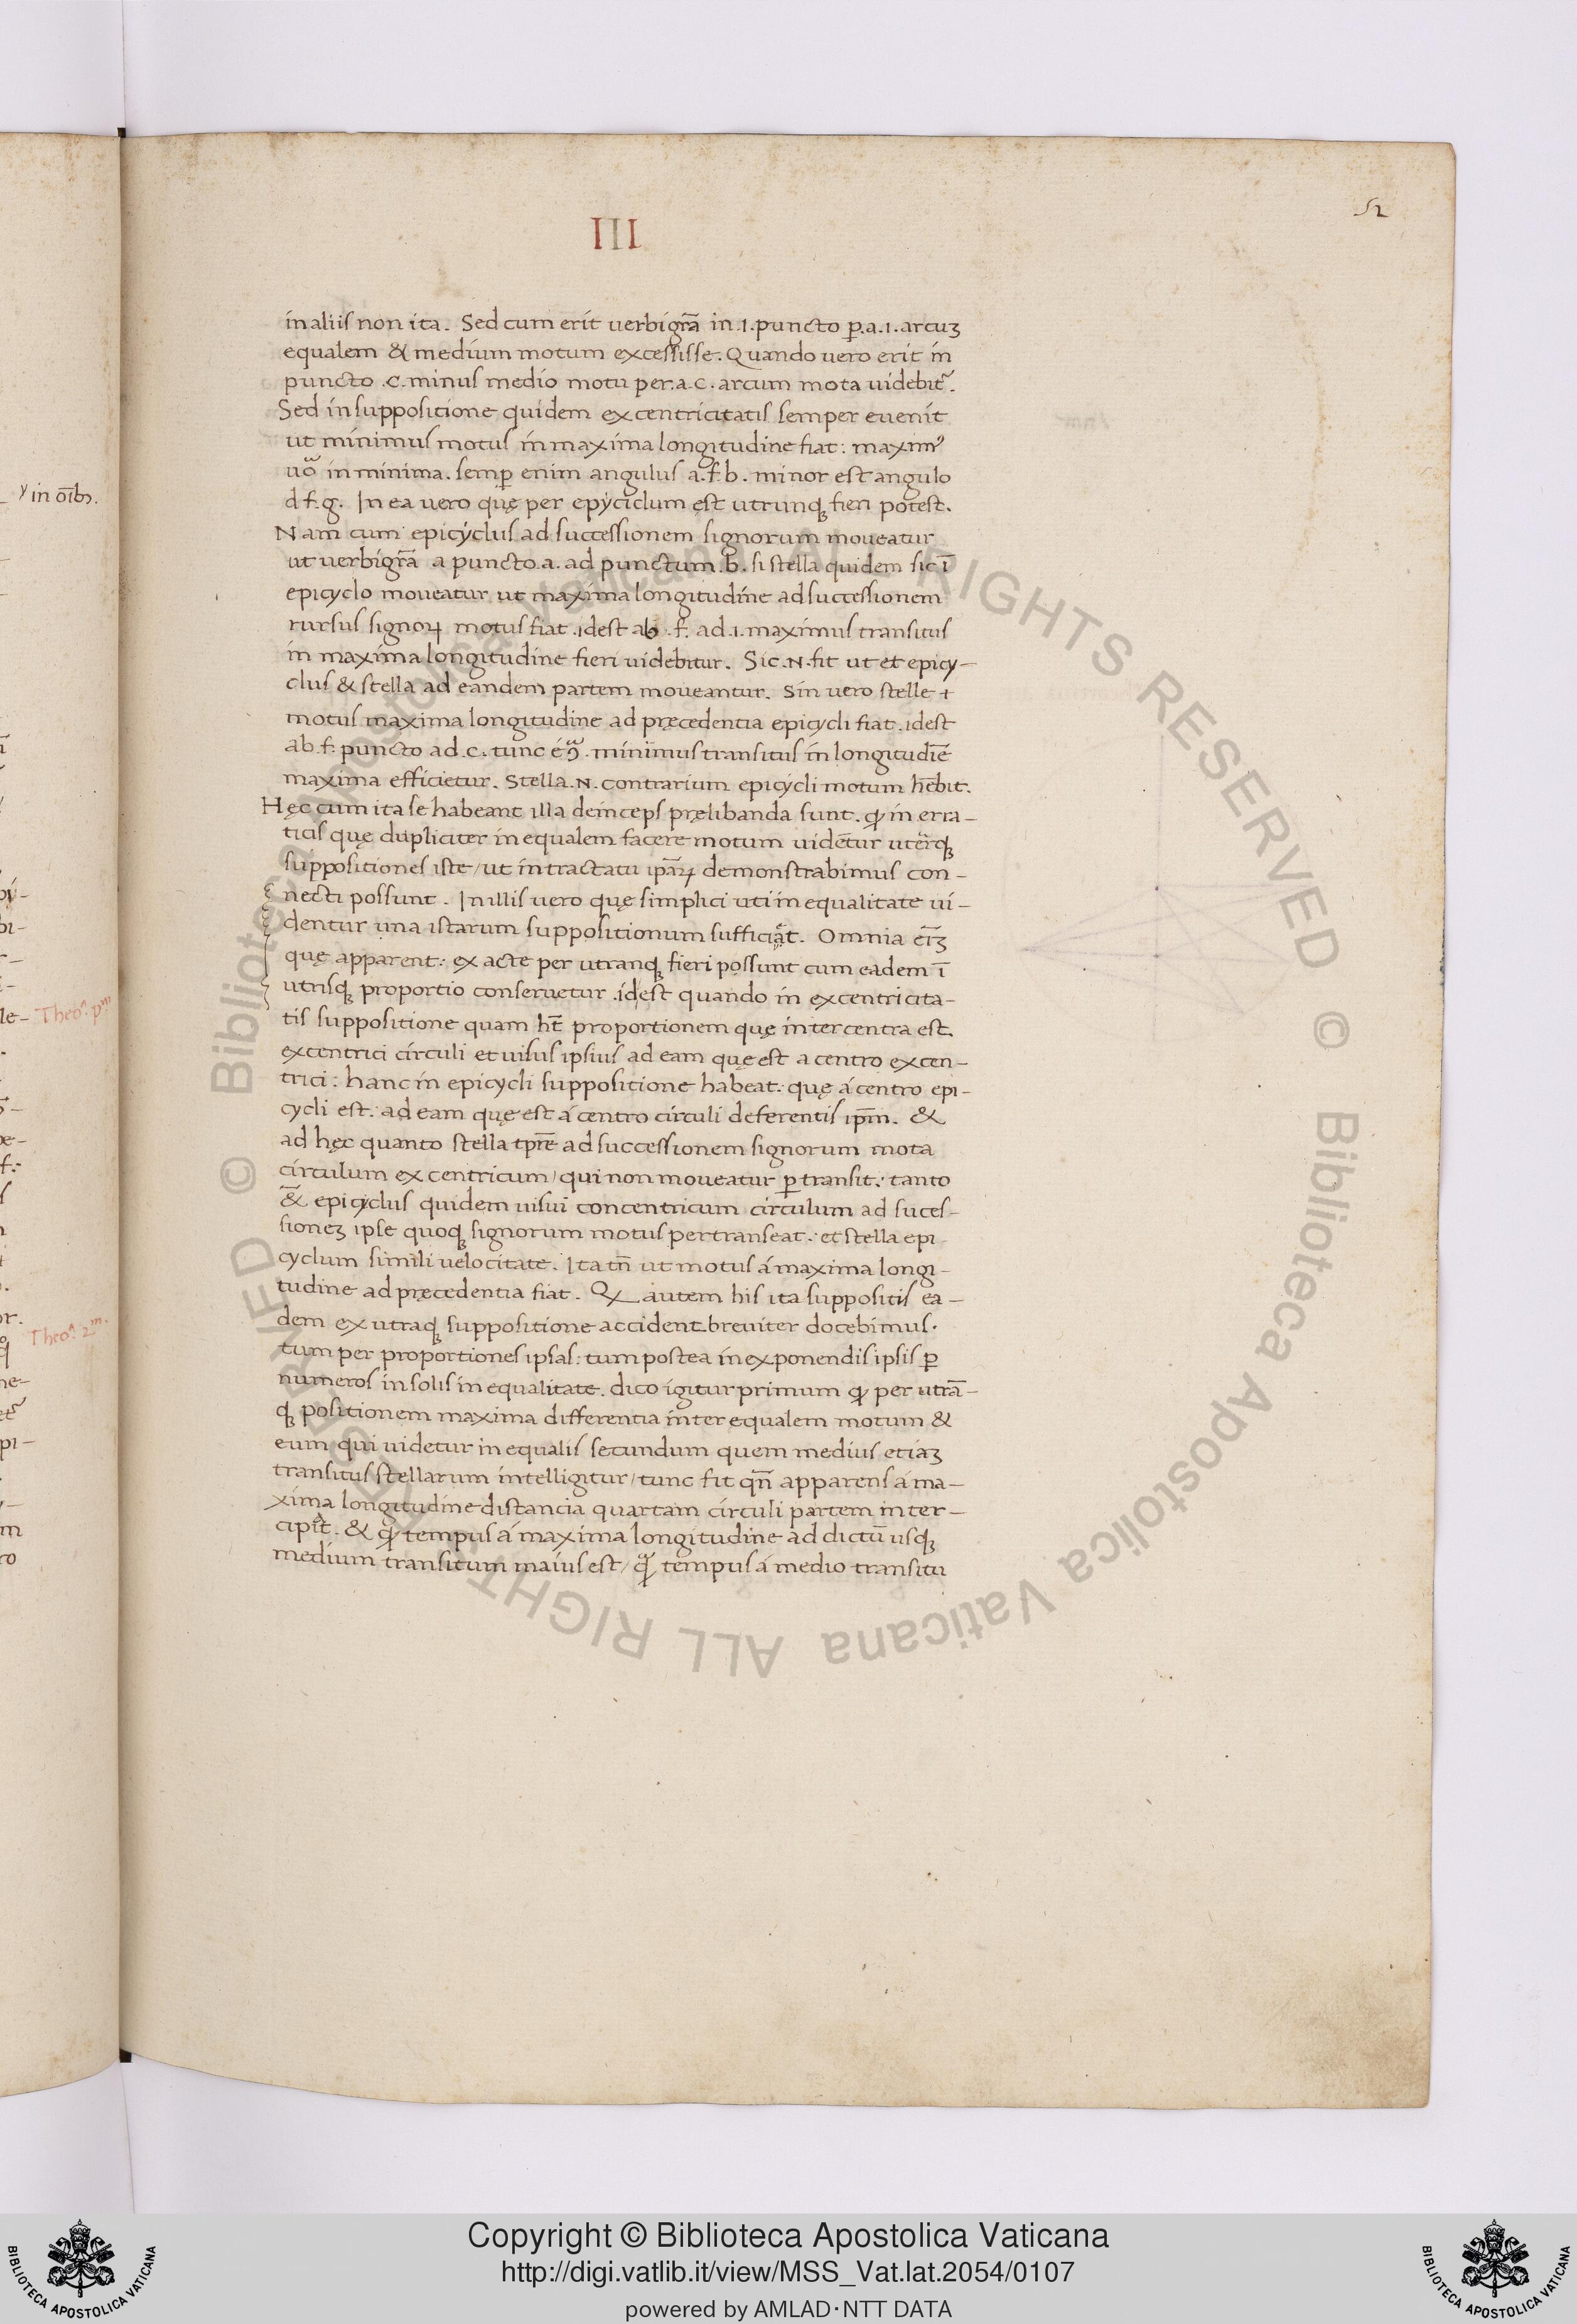 III
52
in aliis non ita. Sed cum erit verbigr̄a in .I. puncto p̱.a.I. arcuȝ
equalem & medium motum excessisse. Quando vero erit in
puncto .C. minus medio motu per.a.C. arcum mota videbit᷑.
Sed in suppositione quidem excentricitatis semper evenit
ut minimus motus in maxima longitudine fiat: maximꝰ
uͦo in minima. semp̱ enim angulus a.f.b. minor est angulo
d f.g. In ea vero quę per epyciclum est utrunqȝ fieri potest.
Nam cum epicyclus ad successionem signorum moveatur
ut verbigr̄a a puncto.a. ad punctum.b. si stella quidem sic ī
epicyclo moveatur ut maxima longitudine ad successionem
rursus signoꝝ motus fiat .idest ab .f. ad .I. maximus transitus
in maxima longitudine fieri videbitur. Sic.N.fit ut et epicy-
clus & stella ad eandem partem moveantur. Sin vero stelle +
motus maxima longitudine ad pręcedentia epicycli fiat .idest
ab.f. puncto ad.C. tunc minimus transitus in longitudīe
maxima efficietur. Stella.N. contrarium epicycli motum hēbit.
Hęc cum ita se habeant illa deinceps pręlibanda sunt. ꝙ in erra-
ticis quę dupliciter inequalem facere motum vidētur uterqȝ
suppositiones iste / ut in tractatu ip̄aꝝ demonstrabimus con-
necti possunt. In illis vero quę simplici uti inequalitate vi-
dentur una istarum suppositionum sufficiat. Omnia et̄iȝ
quę apparent: exacte per utranqȝ fieri possunt cum eadem ī
utrisqȝ proportio conservetur .idest quando in excentricita-
tis suppositione quam ht̄ proportionem quę inter centra est.
excentrici circuli et visus ipsius ad eam quę est a centro excen-
trici: hanc in epicycli suppositione habeat: quę á centro epi-
cycli est: ad eam quę est á centro circuli deferentis ip̄m. &
ad hęc quanto stella tp̄re ad successionem signorum mota
circulum excentricum / qui non moveatur p̱transit: tanto
& epiciclus quidem visui concentricum circulum ad suces-
sioneȝ ipse quoqȝ signorum motus pertranseat: et stella epi-
cyclum simili velocitate. Ita tn̄ ut motus á maxima longi-
tudine ad pręcedentia fiat. Q autem his ita suppositis ea-
dem ex utraqȝ suppositione accident breviter docebimus.
tum per proportiones ipsas: tum postea in exponendis ipsis p̱
numeros in solis inequalitate. dico igitur primum ꝙ per utrā-
qȝ positionem maxima differentia inter equalem motum &
eum qui videtur inequalis secundum quem medius etiaȝ
transitus stellarum intelligitur / tunc fit qn̄ apparens á ma-
xima longitudine distancia quartam circuli partem inter-
cipit. & ꝙ tempus á maxima longitudine ad dictū usqȝ
medium transitum maius est / tempus á medio transitu
in oīb₉.
Theoᵃ. pᵐ
Theoᵃ. 2ᵐ.
© Biblioteca Apostolica Vaticana ALL RIGHTS RESERVED
© Biblioteca Apostolica Vaticana ALL RIGHTS RESERVED
BIBLIOTECA APOSTOLICA VATICANA
Copyright © Biblioteca Apostolica Vaticana
http://digi.vatlib.it/view/MSS_Vat.lat.2054/0107
powered by AMLAD·NTT DATA
BIBLIOTECA APOSTOLICA VATICANA